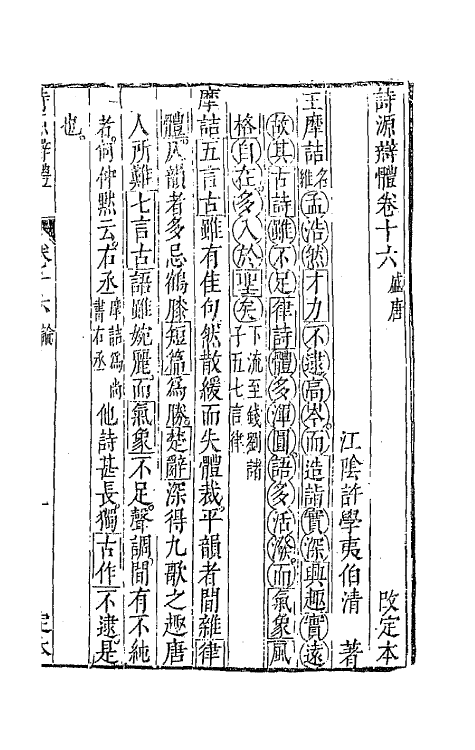 詩源辯體卷十六 盛唐 改定本
江陰許學夷伯清 著
王摩詰名維孟浩然才力不逮高岑而造詣實深興趣實遠
故其古詩雖不足律詩體多渾圓語多活潑而氣象風
格自在多入於聖矣下流至錢劉諸子五七言律
摩詰五言古雖有佳句然散緩而失體裁平韻者間雜律
體仄韻者多忌鶴膝短篇為勝楚辭深得九歌之趣唐
人所難七言古語雖婉麗而氣象不足聲調間有不純
者何仲默云右丞摩詰為尚書右丞他詩甚長獨古作不逮是
也
詩源辯體 卷十六 論 一 定本